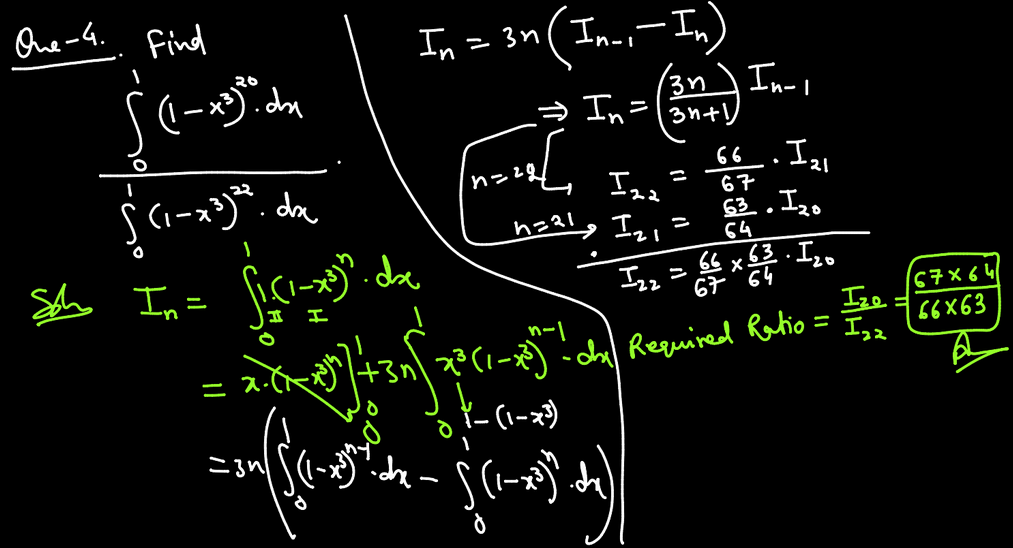 Que-4. Find
∫₀¹ (1-x³)²⁰.dx
∫₀¹ (1-x³)²².dx
Solⁿ Iₙ = ∫₀¹ 1.(1-x³)ⁿ.dx
II I
= x.(1-x³)ⁿ]₀¹ + 3n ∫₀¹ x³(1-x³)ⁿ⁻¹.dx
0
1-(1-x³)
= 3n(∫₀¹ (1-x³)ⁿ⁻¹.dx - ∫₀¹ (1-x³)ⁿ.dx)
Iₙ = 3n(Iₙ₋₁ - Iₙ)
⇒ Iₙ = (3n/3n+1) Iₙ₋₁
n=22 I₂₂ = 66/67 . I₂₁
n=21 I₂₁ = 63/64 . I₂₀
I₂₂ = 66/67 × 63/64 . I₂₀
Required Ratio = I₂₀/I₂₂ = 67×64/66×63